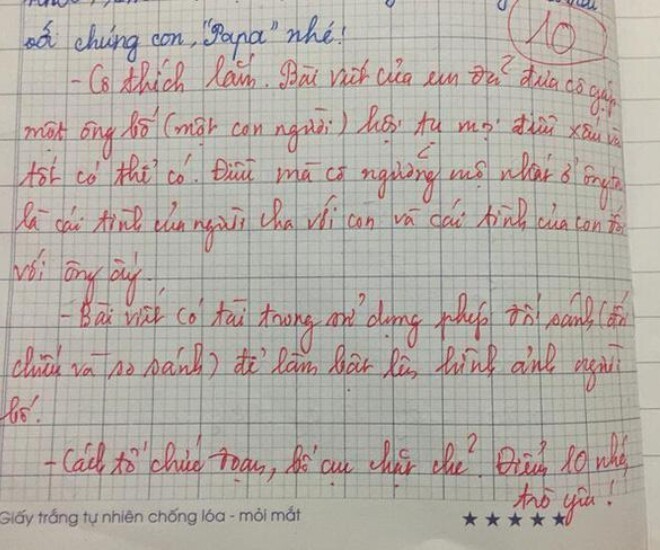 với chúng con, "Papa" nhé!
10
- Cô thích lắm. Bài viết của em đã đưa cô gặp
một ông bố (một con người) hội tụ mọi điều xấu và
tốt có thể có. Điều mà cô ngưỡng mộ nhất ở ông ta
là cái tình của người cha với con và cái tình của con
với ông ấy.
- Bài viết có tài trong sử dụng phép đối sánh (đối
chiếu và so sánh) để làm bật lên hình ảnh người
bố.
- Cách tổ chức đoạn, bố cục chặt chẽ. Điểm 10 nhé,
trò yêu!
Giấy trắng tự nhiên chống lóa - mỏi mắt